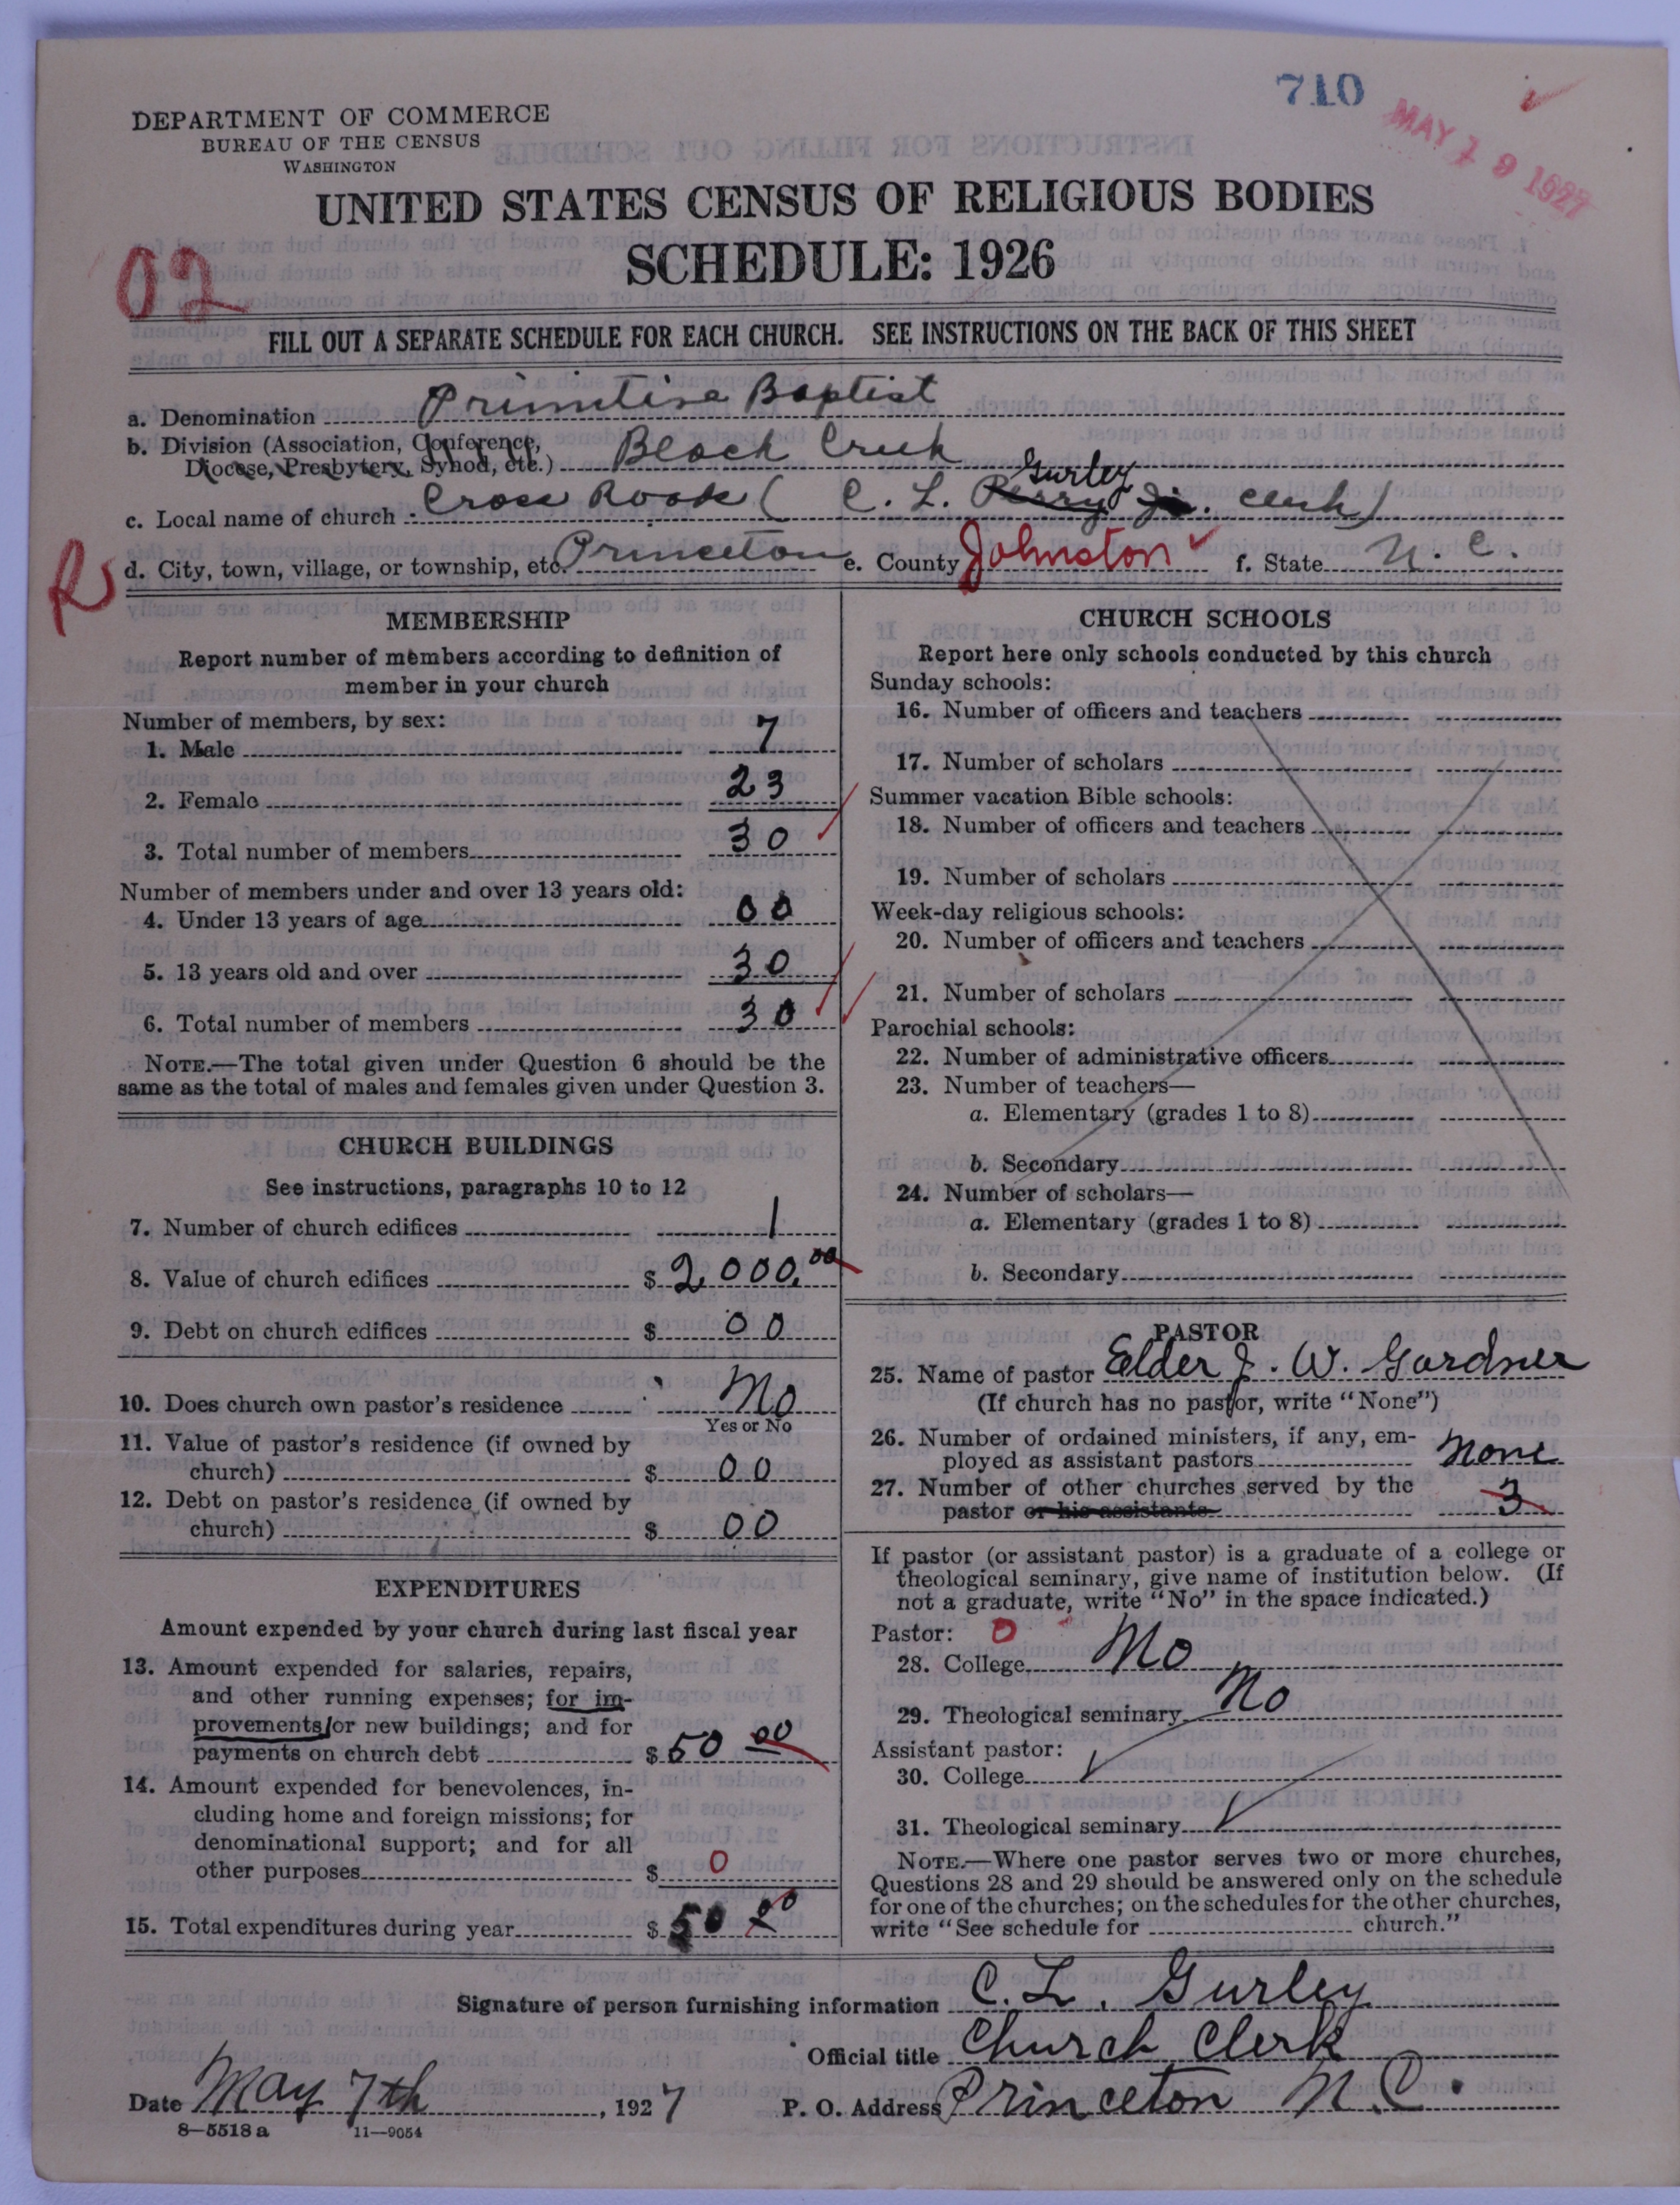 710
MAY 19 1927
DEPARTMENT OF COMMERCE
BUREAU OF THE CENSUS
WASHINGTON
UNITED STATES CENSUS OF RELIGIOUS BODIES
SCHEDULE: 1926
02
FILL OUT A SEPARATE SCHEDULE FOR EACH CHURCH. SEE INSTRUCTIONS ON THE BACK OF THIS SHEET
a. Denomination Primitive Baptist
b. Division (Association, Conference,
Diocese, Presbytery, Synod, etc.) Black Creek
c. Local name of church Cross Roads ( C. L. Perry Gurley Jr. clerk)
d. City, town, village, or township, etc. Princeton e. County Johnston f. State N. C.
R
MEMBERSHIP
Report number of members according to definition of
member in your church
Number of members, by sex:
1. Male 7
2. Female 23
3. Total number of members 30
Number of members under and over 13 years old:
4. Under 13 years of age 00
5. 13 years old and over 30
6. Total number of members 30
NOTE.—The total given under Question 6 should be the
same as the total of males and females given under Question 3.
CHURCH BUILDINGS
See instructions, paragraphs 10 to 12
7. Number of church edifices 1
8. Value of church edifices $ 2,000.00
9. Debt on church edifices $ 00
10. Does church own pastor's residence No
Yes or No
11. Value of pastor's residence (if owned by
church) $ 00
12. Debt on pastor's residence (if owned by
church) $ 00
EXPENDITURES
Amount expended by your church during last fiscal year
13. Amount expended for salaries, repairs,
and other running expenses; for im-
provements/or new buildings; and for
payments on church debt $ 50 00
14. Amount expended for benevolences, in-
cluding home and foreign missions; for
denominational support; and for all
other purposes $ 0
15. Total expenditures during year $ 50 00
CHURCH SCHOOLS
Report here only schools conducted by this church
Sunday schools:
16. Number of officers and teachers
17. Number of scholars
Summer vacation Bible schools:
18. Number of officers and teachers
19. Number of scholars
Week-day religious schools:
20. Number of officers and teachers
21. Number of scholars
Parochial schools:
22. Number of administrative officers
23. Number of teachers—
a. Elementary (grades 1 to 8)
b. Secondary
24. Number of scholars—
a. Elementary (grades 1 to 8)
b. Secondary
PASTOR
25. Name of pastor Elder J. W. Gardner
(If church has no pastor, write "None")
26. Number of ordained ministers, if any, em-
ployed as assistant pastors None
27. Number of other churches served by the
pastor or his assistants 3
If pastor (or assistant pastor) is a graduate of a college or
theological seminary, give name of institution below. (If
not a graduate, write "No" in the space indicated.)
Pastor: 0
28. College No
29. Theological seminary No
Assistant pastor:
30. College
31. Theological seminary
NOTE.—Where one pastor serves two or more churches,
Questions 28 and 29 should be answered only on the schedule
for one of the churches; on the schedules for the other churches,
write "See schedule for church."
Signature of person furnishing information C. L. Gurley
Official title Church Clerk
Date May 7th, 1927 P. O. Address Princeton N.C.
8—5518 a 11—9054